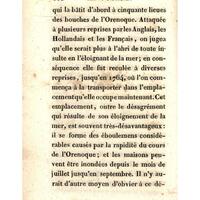 qui la bâtit d'abord à cinquante lieues
des bouches de l'Orenoque. Attaquée
à plusieurs reprises par les Anglais, les
Hollandais et les Français, on jugea
qu'elle serait plus à l'abri de toute in-
sulte en l'éloignant de la mer; en con-
séquence elle fut reculée à diverses
reprises, jusqu'en 1764, où l'on com-
mença à la transporter dans l'empla-
cement qu'elle occupe maintenant. Cet
emplacement, outre le désagrément
qui résulte de son éloignement de la
mer, est souvent très-désavantageux : il
se forme des éboulemens considéra-
bles causés par la rapidité du cours
de l'Orenoque; et les maisons peu-
vent être inondées depuis le mois de
juillet jusqu'en septembre. Il n'y au-
rait d'autre moyen d'obvier à ce dé-